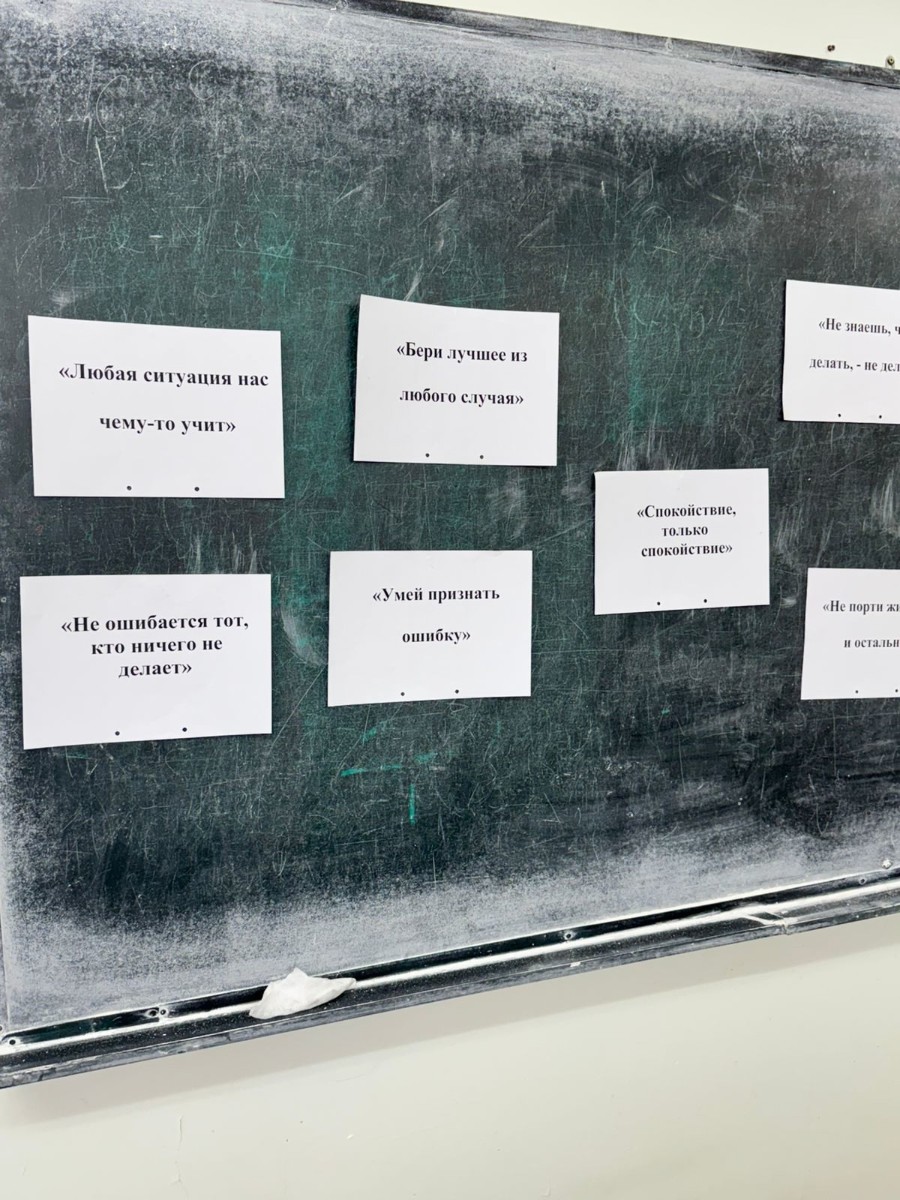 «Любая ситуация нас
чему-то учит»
«Бери лучшее из
любого случая»
«Не знаешь,
делать, - не
«Спокойствие,
только
спокойствие»
«Не ошибается тот,
кто ничего не
делает»
«Умей признать
ошибку»
«Не порти
и